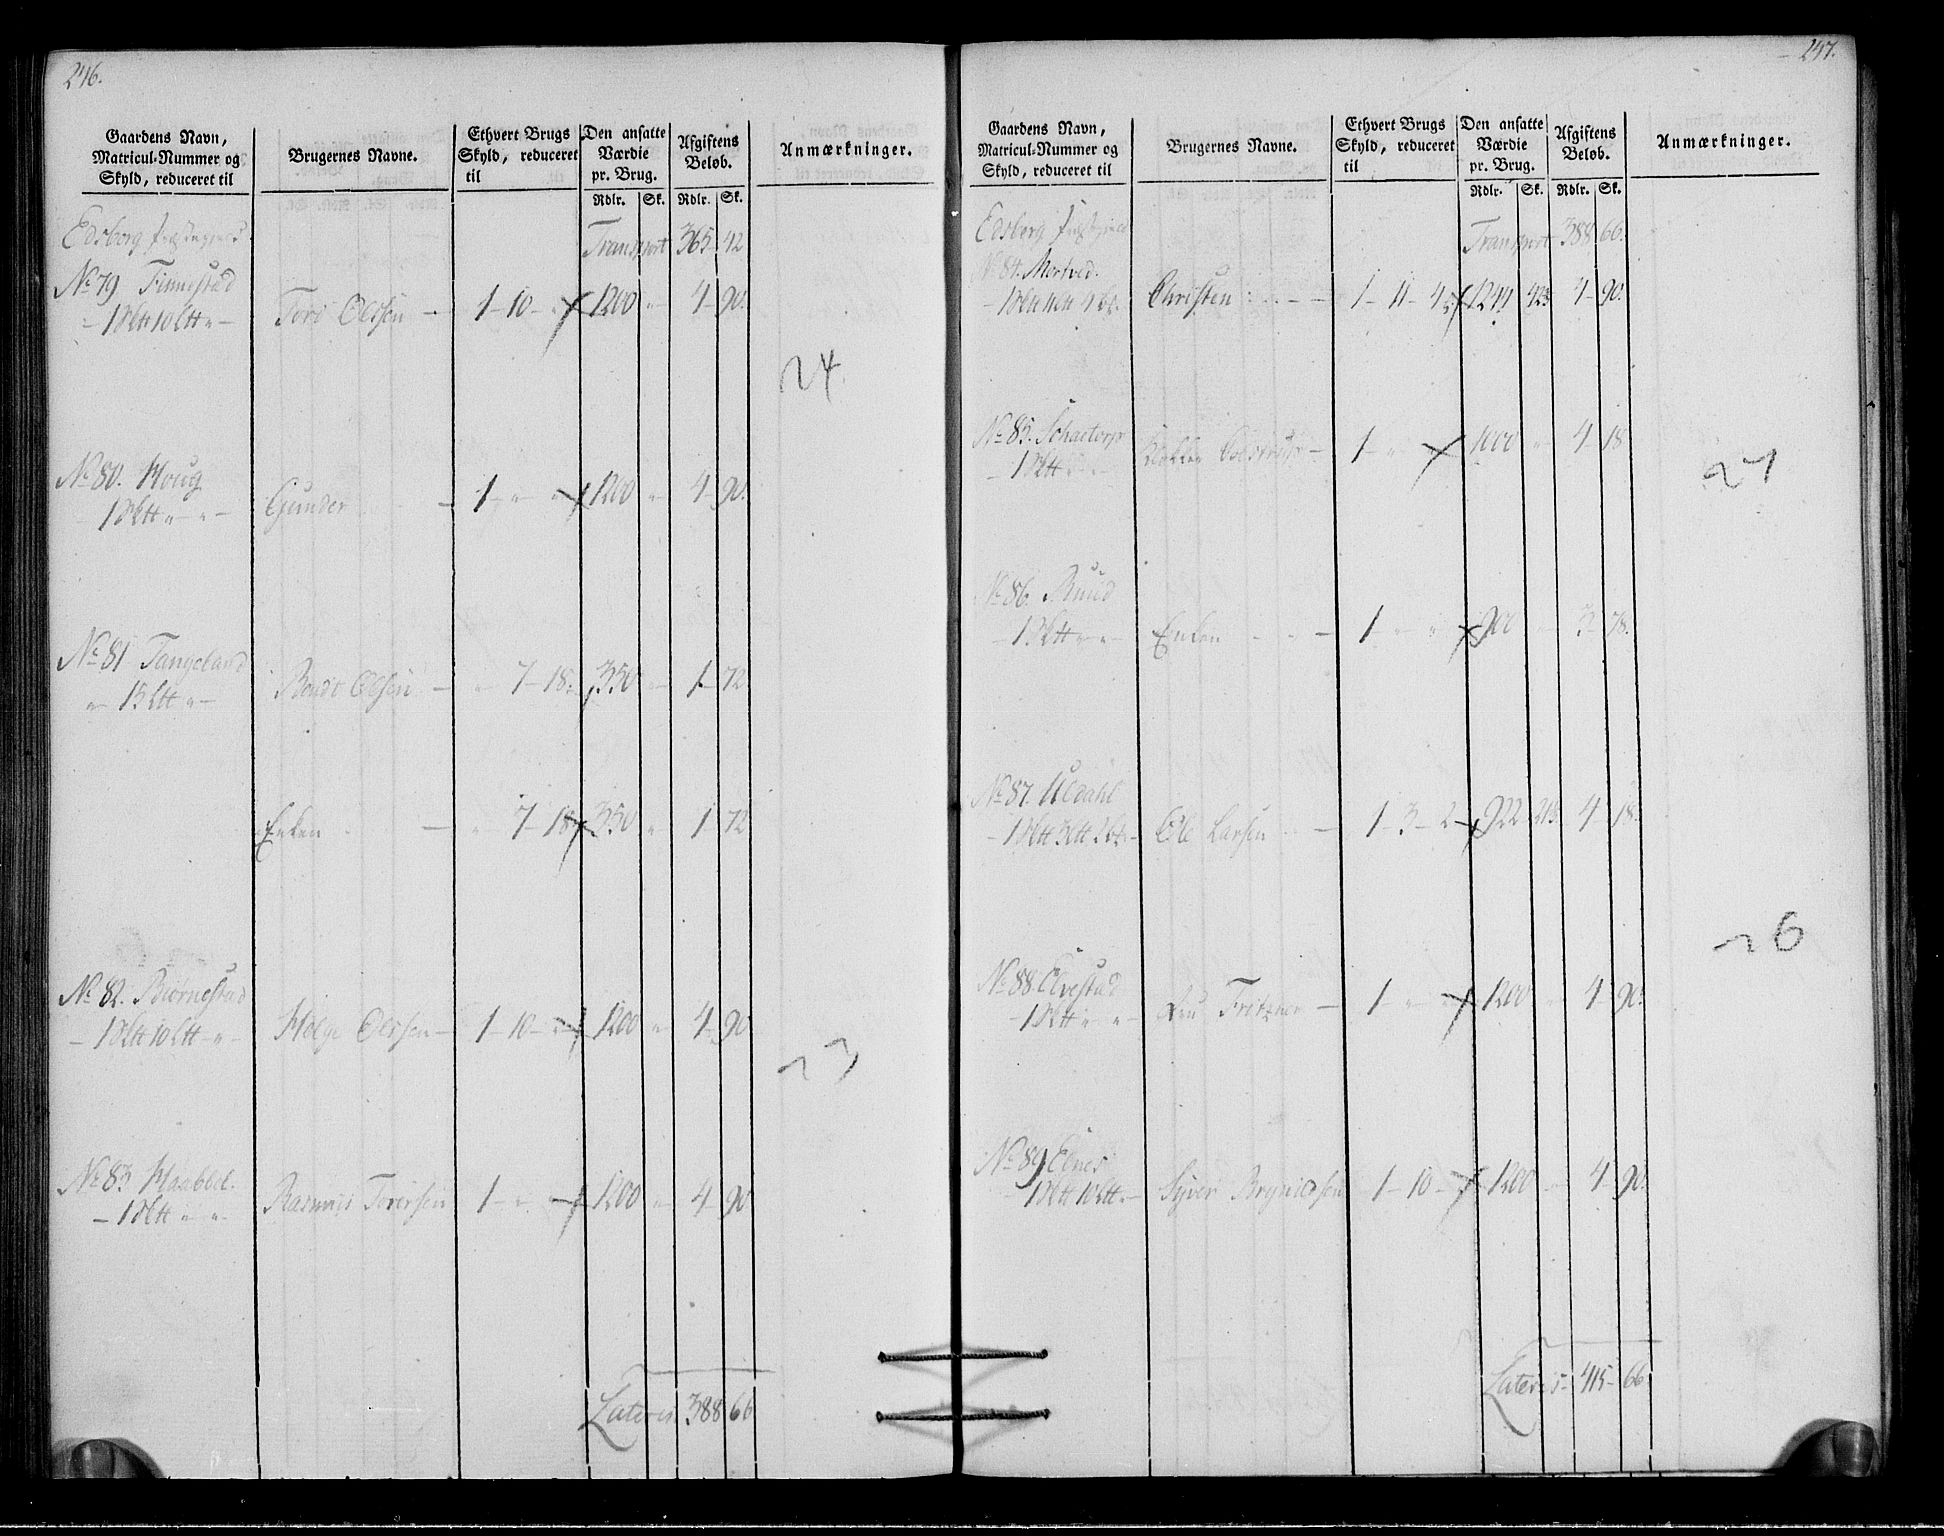 246.
Gaardens Navn, Matricul-Nummer og Skyld, reduceret til
Brugernes Navne.
Ethvert Brugs Skyld, reduceret til
Den ansatte Værdie pr. Brug.
Afgiftens Beløb.
Anmærkninger.
Rdlr. Sk. Rdlr. Sk.
Edsberg Transport 365 42
No 79 Finnestad
1 10 Tori Olsen 1-10 1200 4-90.
24
No 80. Houg
1 Gunder 1 1200 4-90.
No 81 Tangeland
15 Olsen 7-18 350 1-72
Enken 7-18 350 1-72
No 82. Biørnestad
1 10 Helje Olsen 1-10 1200 4-90
23
No 83
1 Rasmus Toresen 1 1200 4-90
Lateris 388 66
247.
Gaardens Navn, Matricul-Nummer og Skyld, reduceret til
Brugernes Navne.
Ethvert Brugs Skyld, reduceret til
Den ansatte Værdie pr. Brug.
Afgiftens Beløb.
Anmærkninger.
Rdlr. Sk. Rdlr. Sk.
Edsberg Transport 388 66.
No 84. Mortved.
Christen 1-11-4 1244 4-90.
No 85.
1 1 1000 4-18
27
No 86. Ruud
1 Enken 1 900 3-78.
No 87. Uldahl
Ole Larsen 1-3-2 922 4-18.
26
No 88. Elvestad
1 Fritzner 1 1200 4-90.
No 89 Enes
1 10 Syver 1-10 1200 4-90.
Lateris 415-66